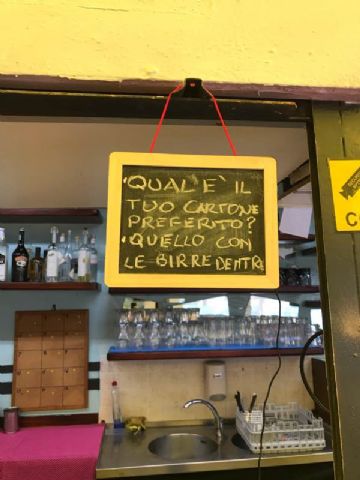 ·QUAL'E' IL
TUO CARTONE
PREFERITO?
·QUELLO CON
LE BIRRE DENTRO